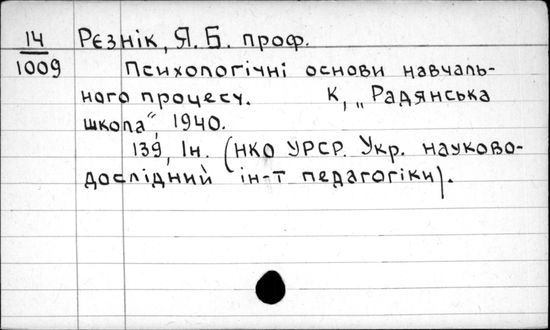 14 Рєзнік, Я. Б. проф.
1009 Психологічні основи навчаль-
ного процесу. К, „Радянська
школа“, 1940.
139, Ін. (НКО УРСР. Укр. науково-
дослідний ін-т педагогіки).